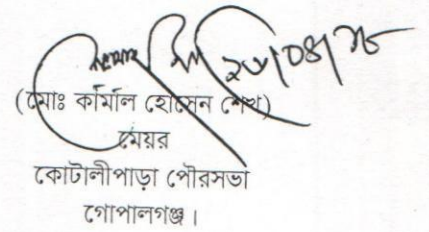 ২৬/০৪/১৮
(মোঃ কামাল হোসেন শেখ)
মেয়র
কোটালীপাড়া পৌরসভা
গোপালগঞ্জ।